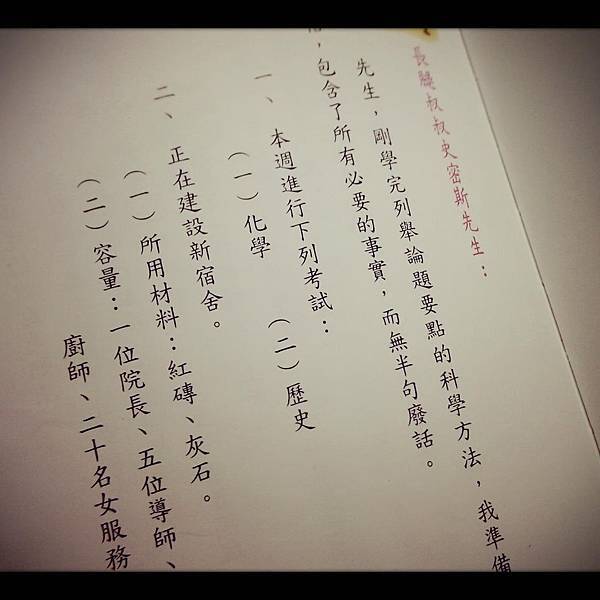 長腿叔叔史密斯先生：
先生，剛學完列舉論題要點的科學方法，我準備
，包含了所有必要的事實，而無半句廢話。
一、本週進行下列考試：
（一）化學　（二）歷史
二、正在建設新宿舍。
（一）所用材料：紅磚、灰石。
（二）容量：一位院長、五位導師、
廚師、二十名女服務